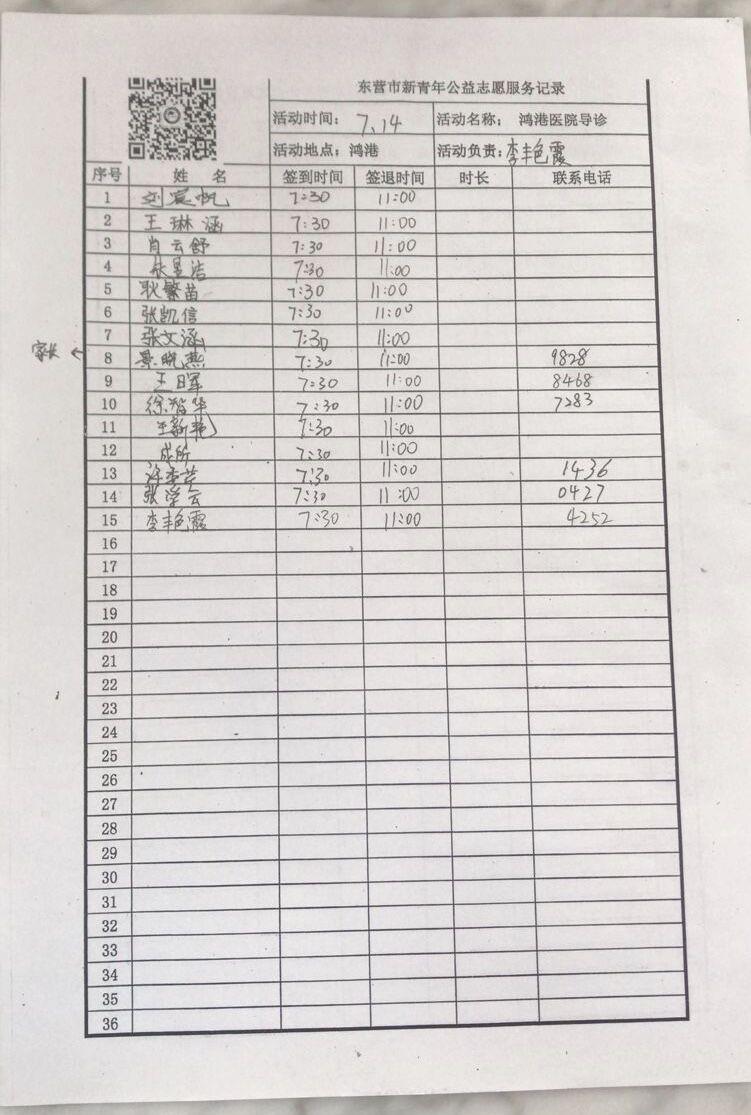 东营市新青年公益志愿服务记录
活动时间： 7.14 活动名称： 鸿港医院导诊
活动地点：鸿港 活动负责：李艳霞
序号 姓 名 签到时间 签退时间 时长 联系电话
1 7:30 11:00
2 王琳涵 7:30 11:00
3 肖云舒 7:30 11:00
4 张昱洁 7:30 11:00
5 耿繁苗 7:30 11:00
6 张凯信 7:30 11:00
7 张文涵 7:30 11:00
家长 ← 8 景晓燕 7:30 11:00 9828
9 王日军 7:30 11:00 8468
10 7:30 11:00 7283
11 7:30 11:00
12 7:30 11:00
13 7:30 11:00 1436
14 张学云 7:30 11:00 0427
15 李艳霞 7:30 11:00 4252
16
17
18
19
20
21
22
23
24
25
26
27
28
29
30
31
32
33
34
35
36